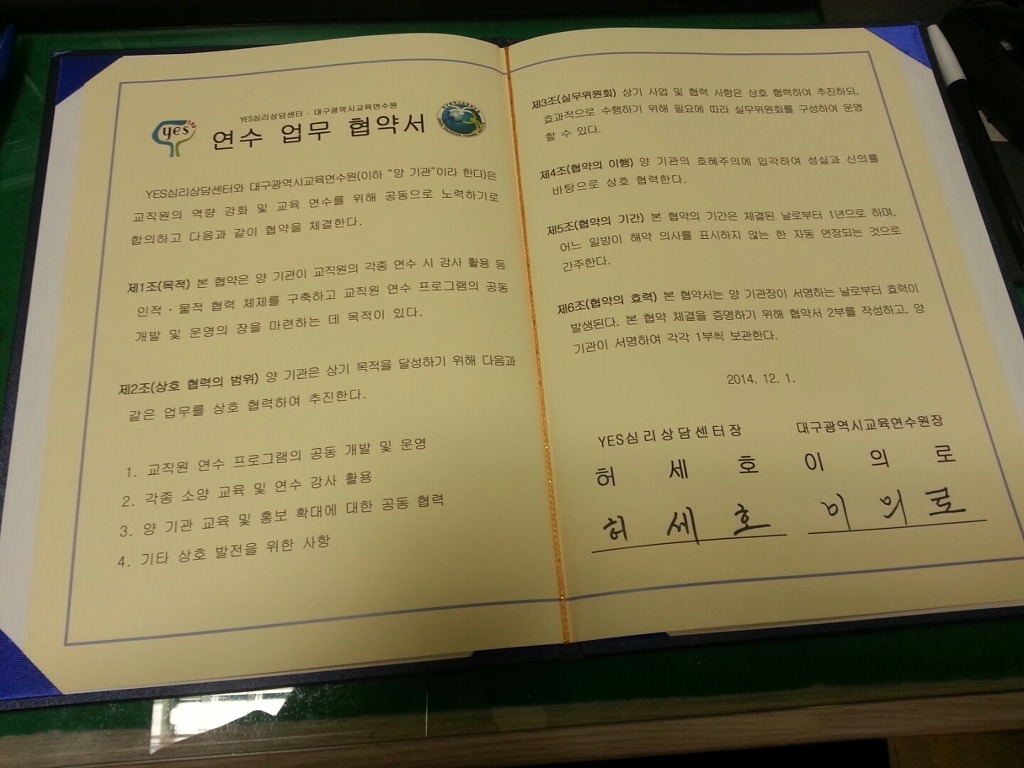 YES심리상담센터 - 대구광역시교육연수원
yes
연수 업무 협약서
YES심리상담센터와 대구광역시교육연수원(이하 "양 기관"이라 한다)은
교직원의 역량 강화 및 교육 연수를 위해 공동으로 노력하기로
합의하고 다음과 같이 협약을 체결한다.
제1조(목적) 본 협약은 양 기관이 교직원의 각종 연수 시 강사 활용 등
인적·물적 협력 체제를 구축하고 교직원 연수 프로그램의 공동
개발 및 운영의 장을 마련하는 데 목적이 있다.
제2조(상호 협력의 범위) 양 기관은 상기 목적을 달성하기 위해 다음과
같은 업무를 상호 협력하여 추진한다.
1. 교직원 연수 프로그램의 공동 개발 및 운영
2. 각종 소양 교육 및 연수 강사 활용
3. 양 기관 교육 및 홍보 확대에 대한 공동 협력
4. 기타 상호 발전을 위한 사항
제3조(실무위원회) 상기 사업 및 협력 사항은 상호 협력하여 추진하되,
효과적으로 수행하기 위해 필요에 따라 실무위원회를 구성하여 운영
할 수 있다.
제4조(협약의 이행) 양 기관의 호혜주의에 입각하여 성실과 신의를
바탕으로 상호 협력한다.
제5조(협약의 기간) 본 협약의 기간은 체결된 날로부터 1년으로 하며,
어느 일방이 해약 의사를 표시하지 않는 한 자동 연장되는 것으로
간주한다.
제6조(협약의 효력) 본 협약서는 양 기관장이 서명하는 날로부터 효력이
발생된다. 본 협약 체결을 증명하기 위해 협약서 2부를 작성하고, 양
기관이 서명하여 각각 1부씩 보관한다.
2014. 12. 1.
YES심리상담센터장 대구광역시교육연수원장
허 세 호 이 의 로
허 세 호 이 의 로